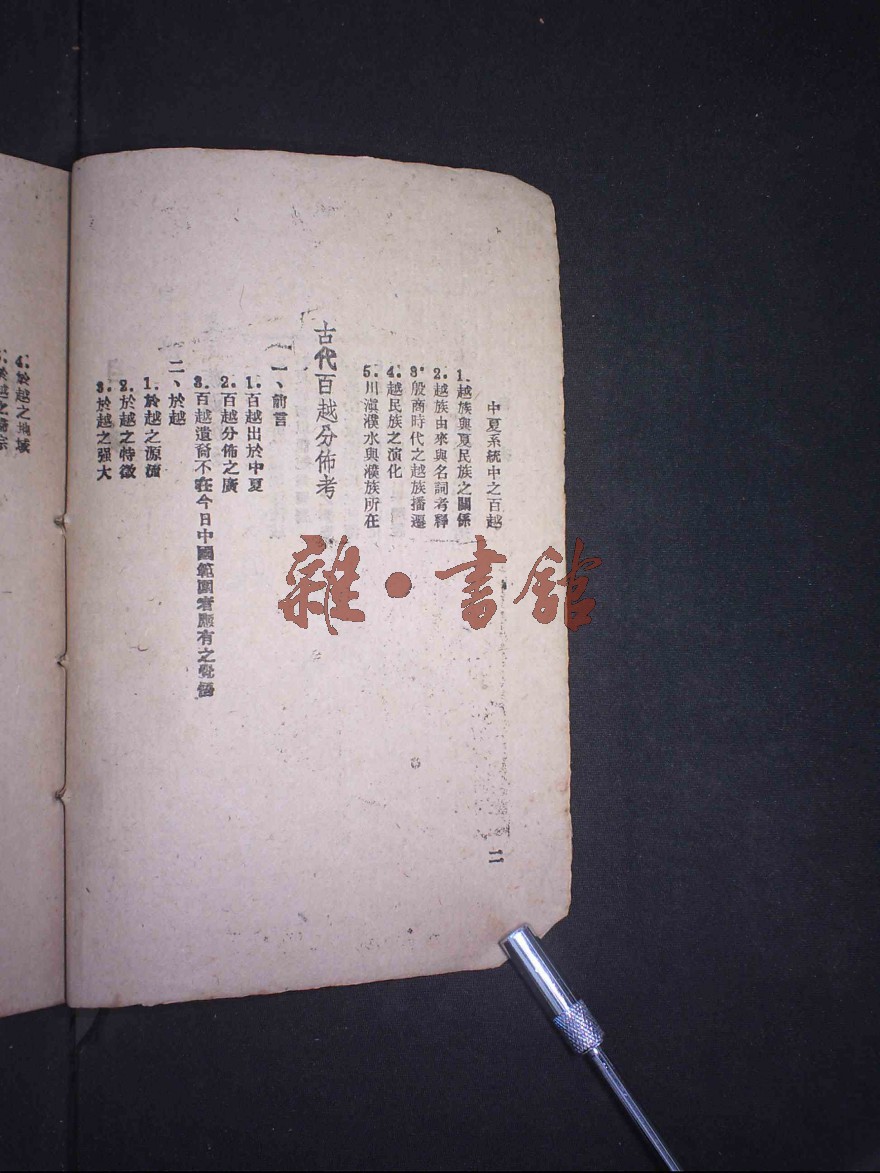 中夏系統中之百越
1.越族與夏民族之關係
2.越族由來與名詞考釋
3.殷商時代之越族播遷
4.越民族之演化
5.川滇濮水與濮族所在
古代百越分佈考
一、前言
1.百越出於中夏
2.百越分佈之廣
3.百越遺裔不在今日中國範圍者應有之覺悟
二、於越
1.於越之源流
2.於越之特徵
3.於越之强大
二
4.於越之地域
雜·書館